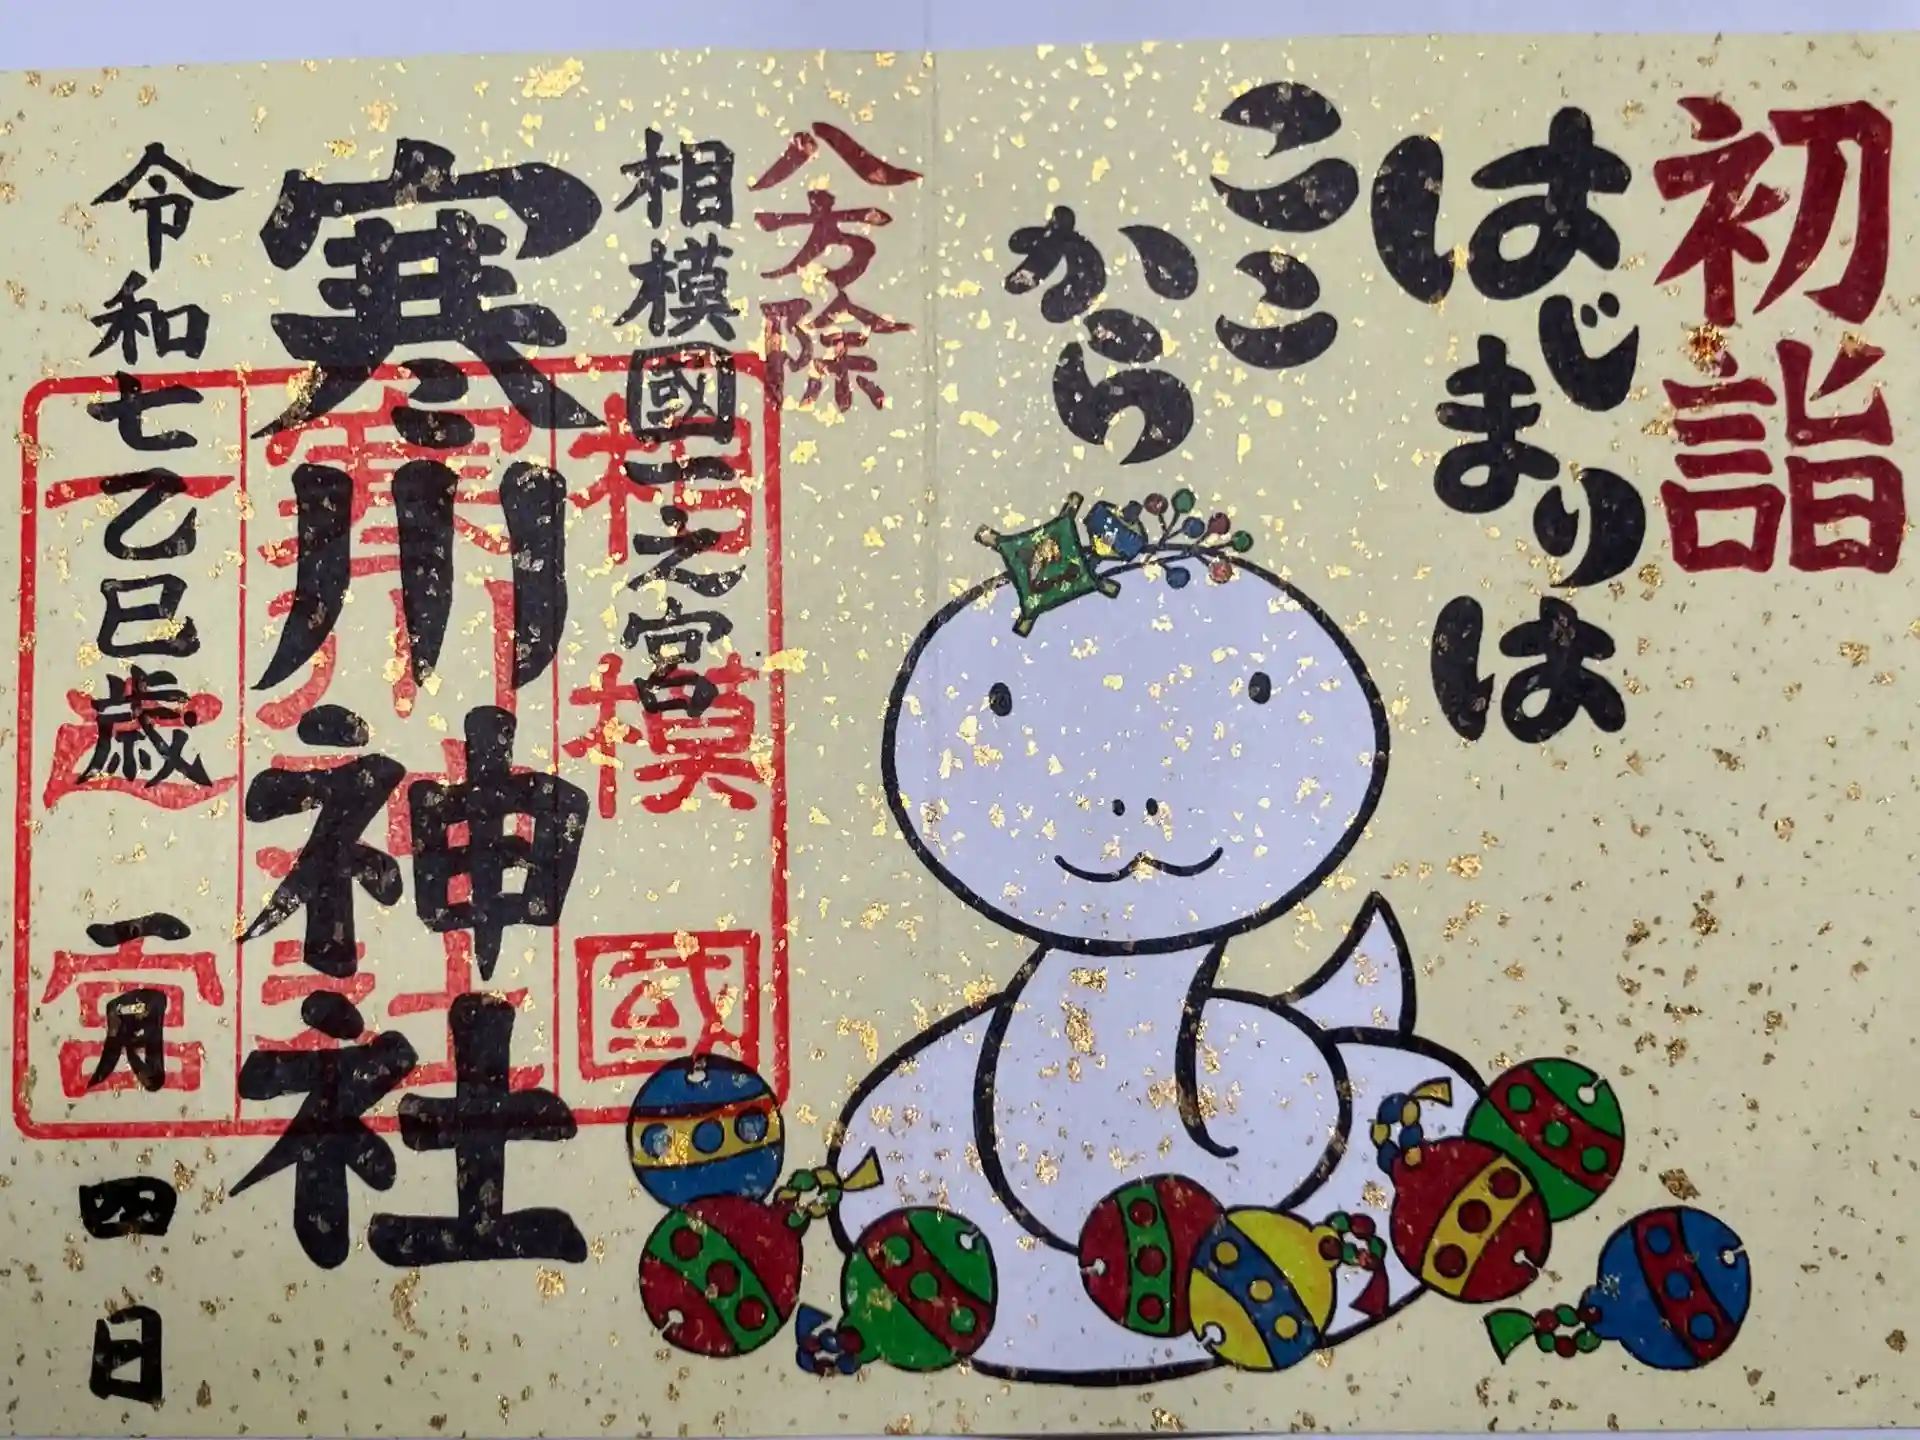 初詣
はじまりは
ここ
から
八方除
相模國一之宮
寒川神社
令和七乙巳歳 一月四日
相模國
寒川神社
一之宮